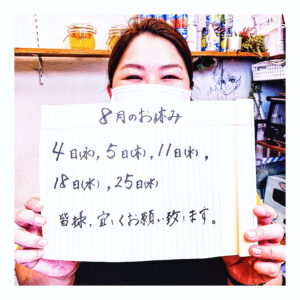 8月のお休み
4日(水), 5日(木), 11日(水),
18日(水), 25日(水)
皆様、宜しくお願い致します。